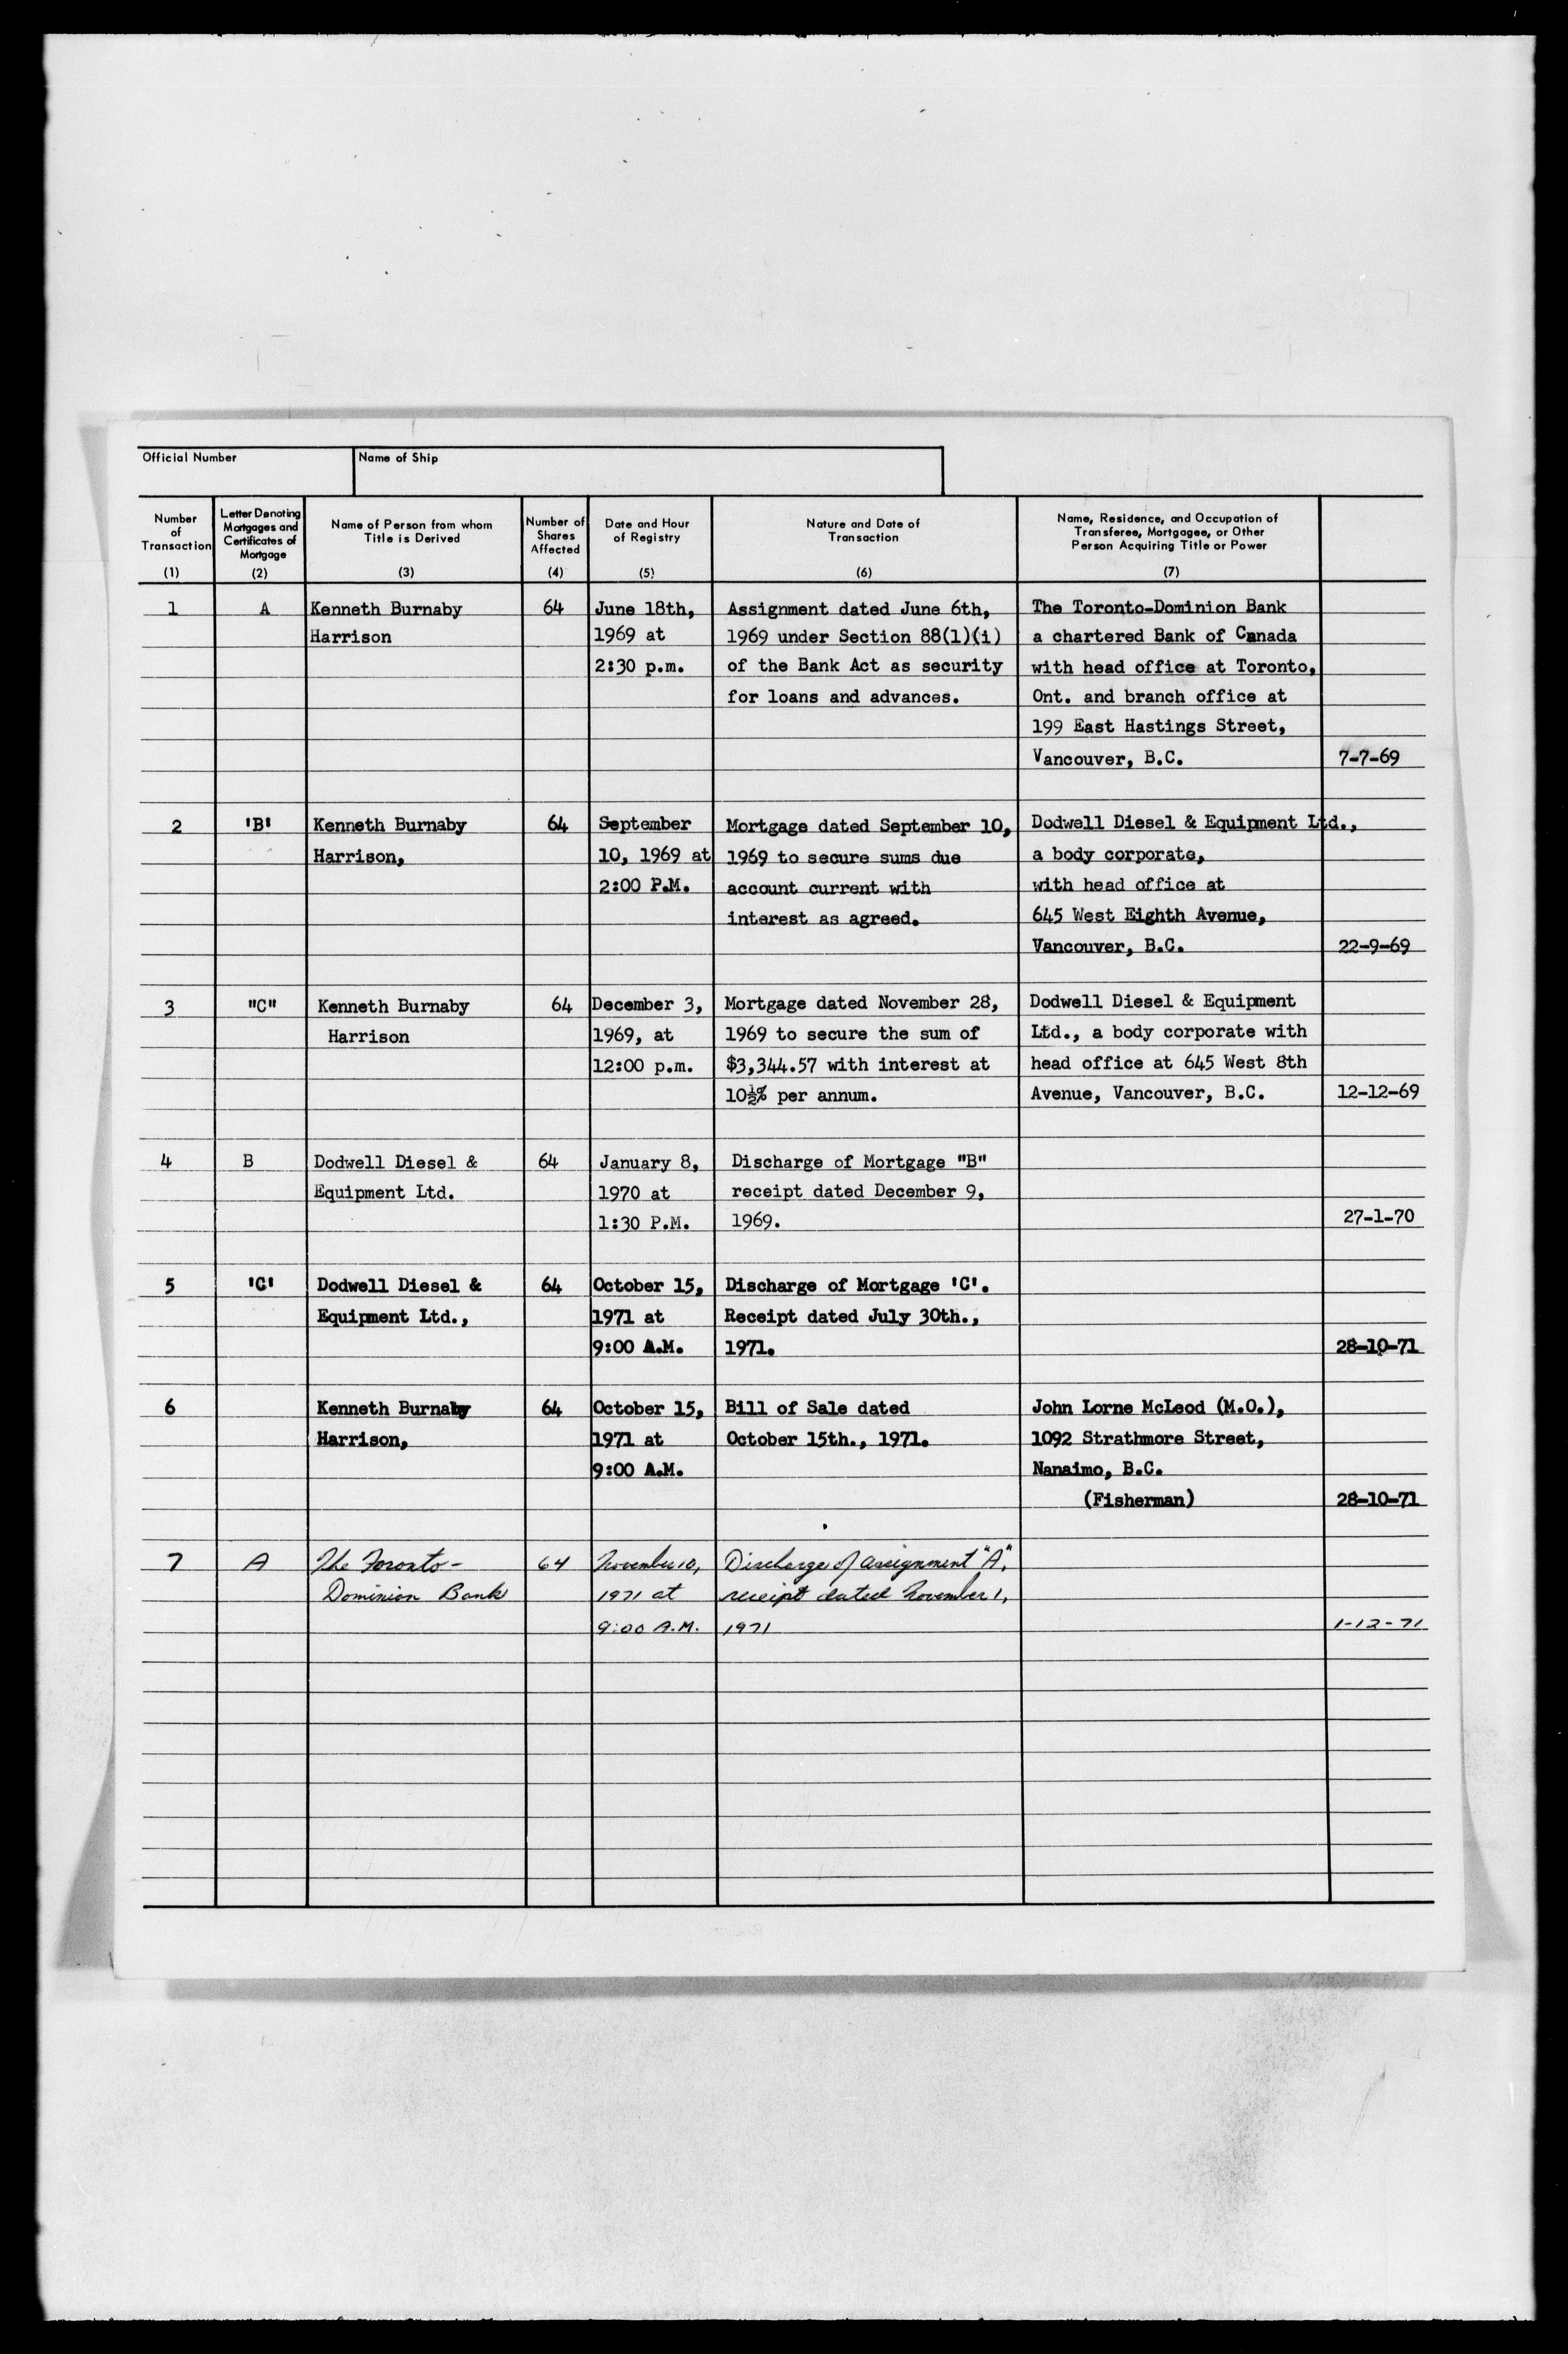 Official Number
Name of Ship
Number of Transaction (1)
Letter Denoting Mortgages and Certificates of Mortgage (2)
Name of Person from whom Title is Derived (3)
Number of Shares Affected (4)
Date and Hour of Registry (5)
Nature and Date of Transaction (6)
Name, Residence, and Occupation of Transferee, Mortgagee, or Other Person Acquiring Title or Power (7)
1 A Kenneth Burnaby 64 June 18th, Assignment dated June 6th, The Toronto-Dominion Bank
Harrison 1969 at 1969 under Section 88(1)(i) a chartered Bank of Canada
2:30 p.m. of the Bank Act as security with head office at Toronto,
for loans and advances. Ont. and branch office at
199 East Hastings Street,
Vancouver, B.C. 7-7-69
2 'B' Kenneth Burnaby 64 September Mortgage dated September 10, Dodwell Diesel & Equipment Ltd.,
Harrison, 10, 1969 at 1969 to secure sums due a body corporate,
2:00 P.M. account current with with head office at
interest as agreed. 645 West Eighth Avenue,
Vancouver, B.C. 22-9-69
3 "C" Kenneth Burnaby 64 December 3, Mortgage dated November 28, Dodwell Diesel & Equipment
Harrison 1969, at 1969 to secure the sum of Ltd., a body corporate with
12:00 p.m. $3,344.57 with interest at head office at 645 West 8th
10½% per annum. Avenue, Vancouver, B.C. 12-12-69
4 B Dodwell Diesel & 64 January 8, Discharge of Mortgage "B"
Equipment Ltd. 1970 at receipt dated December 9,
1:30 P.M. 1969. 27-1-70
5 'C' Dodwell Diesel & 64 October 15, Discharge of Mortgage 'C'.
Equipment Ltd., 1971 at Receipt dated July 30th.,
9:00 A.M. 1971. 28-10-71
6 Kenneth Burnaby 64 October 15, Bill of Sale dated John Lorne McLeod (M.O.),
Harrison, 1971 at October 15th., 1971. 1092 Strathmore Street,
9:00 A.M. Nanaimo, B.C.
(Fisherman) 28-10-71
7 A The Toronto- 64 November 10, Discharge of assignment "A",
Dominion Bank 1971 at receipt dated November 1,
9:00 A.M. 1971 1-12-71